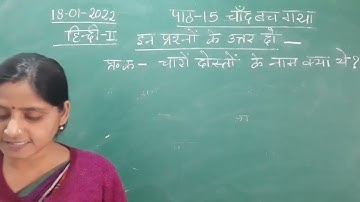 18-01-2022 पाठ-15 चाँद बच गया
हिन्दी-II इन प्रश्नों के उत्तर दो—
प्र.क- चारों दोस्तों के नाम क्या थे?